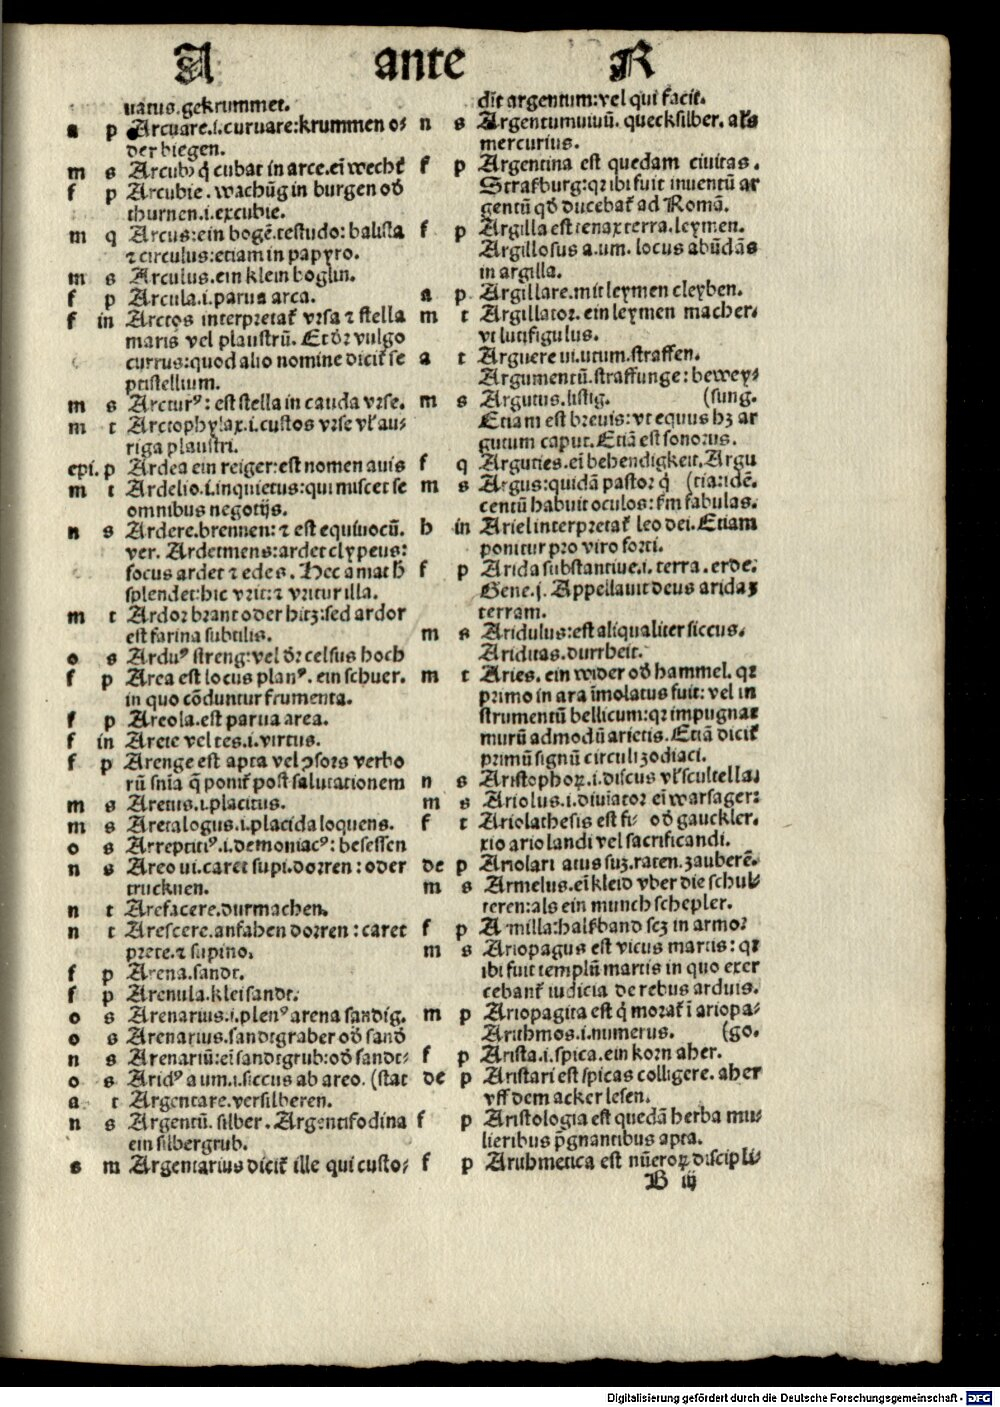 A ante R
uatus.gekrummet.
a p Arcuare.i.curuare:krummen o⸗
der biegen.
m s Arcubꝰ q̇ cubat in arce.eī wechẗ
f p Arcubie.wachūg in burgen od̄
thurnen.i.excubie.
m q Arcus:ein bogē.testudo:balista
⁊ circulus:etiam in papyro.
m s Arculus.ein klein boglin.
f p Arcula.i.parua arca.
f in Arctos interpretat̄ vrsa ⁊ stella
maris vel plaustrū. Et dr̄ vulgo
currus:quod alio nomine dicit̄ se
ptistellium.
m s Arcturꝰ: est stella in cauda vrse.
m t Arctophylax.i.custos vrse vl̄ au⸗
riga plaustri.
epi. p Ardea ein reiger:est nomen auis
m t Ardelio.i.inquietus:qui miscet se
omnibus negotijs.
n s Ardere.brennen:⁊ est equiuocū.
ver. Ardetmens:ardet clypeus:
focus ardet ⁊ edes. Hec amat h̄
splendet:hic vrit:⁊ vritur illa.
m t Ardor brant oder hitz:sed ardor
est farina subtilis.
o s Arduꝰ streng:vel dr̄ celsus hoch
f p Area est locus planꝰ. ein schuer.
in quo cōduntur frumenta.
f p Areola.est parua area.
f in Arete vel tes.i.virtus.
f p Arenge est apta vel ꝯsors verbo
rū snīa q̄ ponit̄ post salutationem
m s Aretus.i.placitus.
m s Aretalogus.i.placida loquens.
o s Arreptitiꝰ.i.demoniacꝰ: besessen
n s Areo ui.caret supi.dorren:oder
trucknen.
n t Arefacere.durmachen.
n t Arescere.anfahen dorren:caret
prete.⁊ supino.
f p Arena.sandt.
f p Arenula.klei sandt.
o s Arenarius.i.plenꝰ arena sandig.
o s Arenarius.sandtgraber od̄ sand̄
n s Arenariū:eī sandtgrub:od̄ sandt⸗
o s Aridꝰ a um.i.siccus ab areo. (stat
a t Argentare.versilberen.
n s Argentū. silber. Argentifodina
ein silbergrub.
s m Argentarius dicit̄ ille qui custo⸗
dit argentum:vel qui facit.
n s Argentumuiuū. quecksilber. als
mercurius.
f p Argentina est quedam ciuitas.
Strasburg:qꝛ ibi fuit inuentū ar
gentū qd̄ ducebat̄ ad Romā.
f p Argilla est tenax terra. leymen.
Argillosus a.um. locus abūdās
in argilla.
a p Argillare.mit leymen cleyben.
m t Argillator. ein leymen macher.
vt lutifigulus.
a t Arguere ui.utum.straffen.
Argumentū.straffunge:bewey⸗
m s Argutus.listig. (sung.
Etiam est breuis:vt equus hꝫ ar
gutum caput.Etiā est sonorus.
f q Arguties.eī behendigkeit.Argu
m s Argus:quidā pastor q̇ (tia:idē.
centū habuit oculos:fm̄ fabulas.
b in Ariel interpretat̄ leo dei.Etiam
ponitur pro viro forti.
f p Arida substantiue.i.terra.erde.
Gene.j. Appellauit deus aridaꝫ
terram.
m s Aridulus:est aliqualiter siccus.
Ariditas.durrheit.
m t Aries. ein wider od̄ hammel. qꝛ
primo in ara īmolatus fuit:vel in
strumentū bellicum:qꝛ impugnat
murū admodū arietis. Etiā dicit̄
primū signū circuli zodiaci.
n s Aristophoꝝ.i.discus vl̄ scultella.
m s Ariolus.i.diuiator eī warsager:
f t Ariolathesis est fi⸗ od̄ gauckler.
xio ariolandi vel sacrificandi.
de p Ariolari atus suꝫ.raten.zauberē.
m s Armelus.eī kleid vber die schul⸗
teren:als ein munch schepler.
f p Armilla:halßband seꝫ in armo:
m s Ariopagus est vicus martis: qꝛ
ibi fuit templū martis in quo exer
cebant̄ iudicia de rebus arduis.
m p Ariopagita est q̇ morat̄ ī ariopa⸗
Arithmos.i.numerus. (go.
f p Arista.i.spica.ein korn aher.
de p Aristari est spicas colligere. aher
vff dem acker lesen.
f p Aristologia est quedā herba mu⸗
lieribus p̄gnantibus apta.
f p Arithmetica est nūeroꝝ discipli⸗
B iij
Digitalisierung gefördert durch die Deutsche Forschungsgemeinschaft - DFG